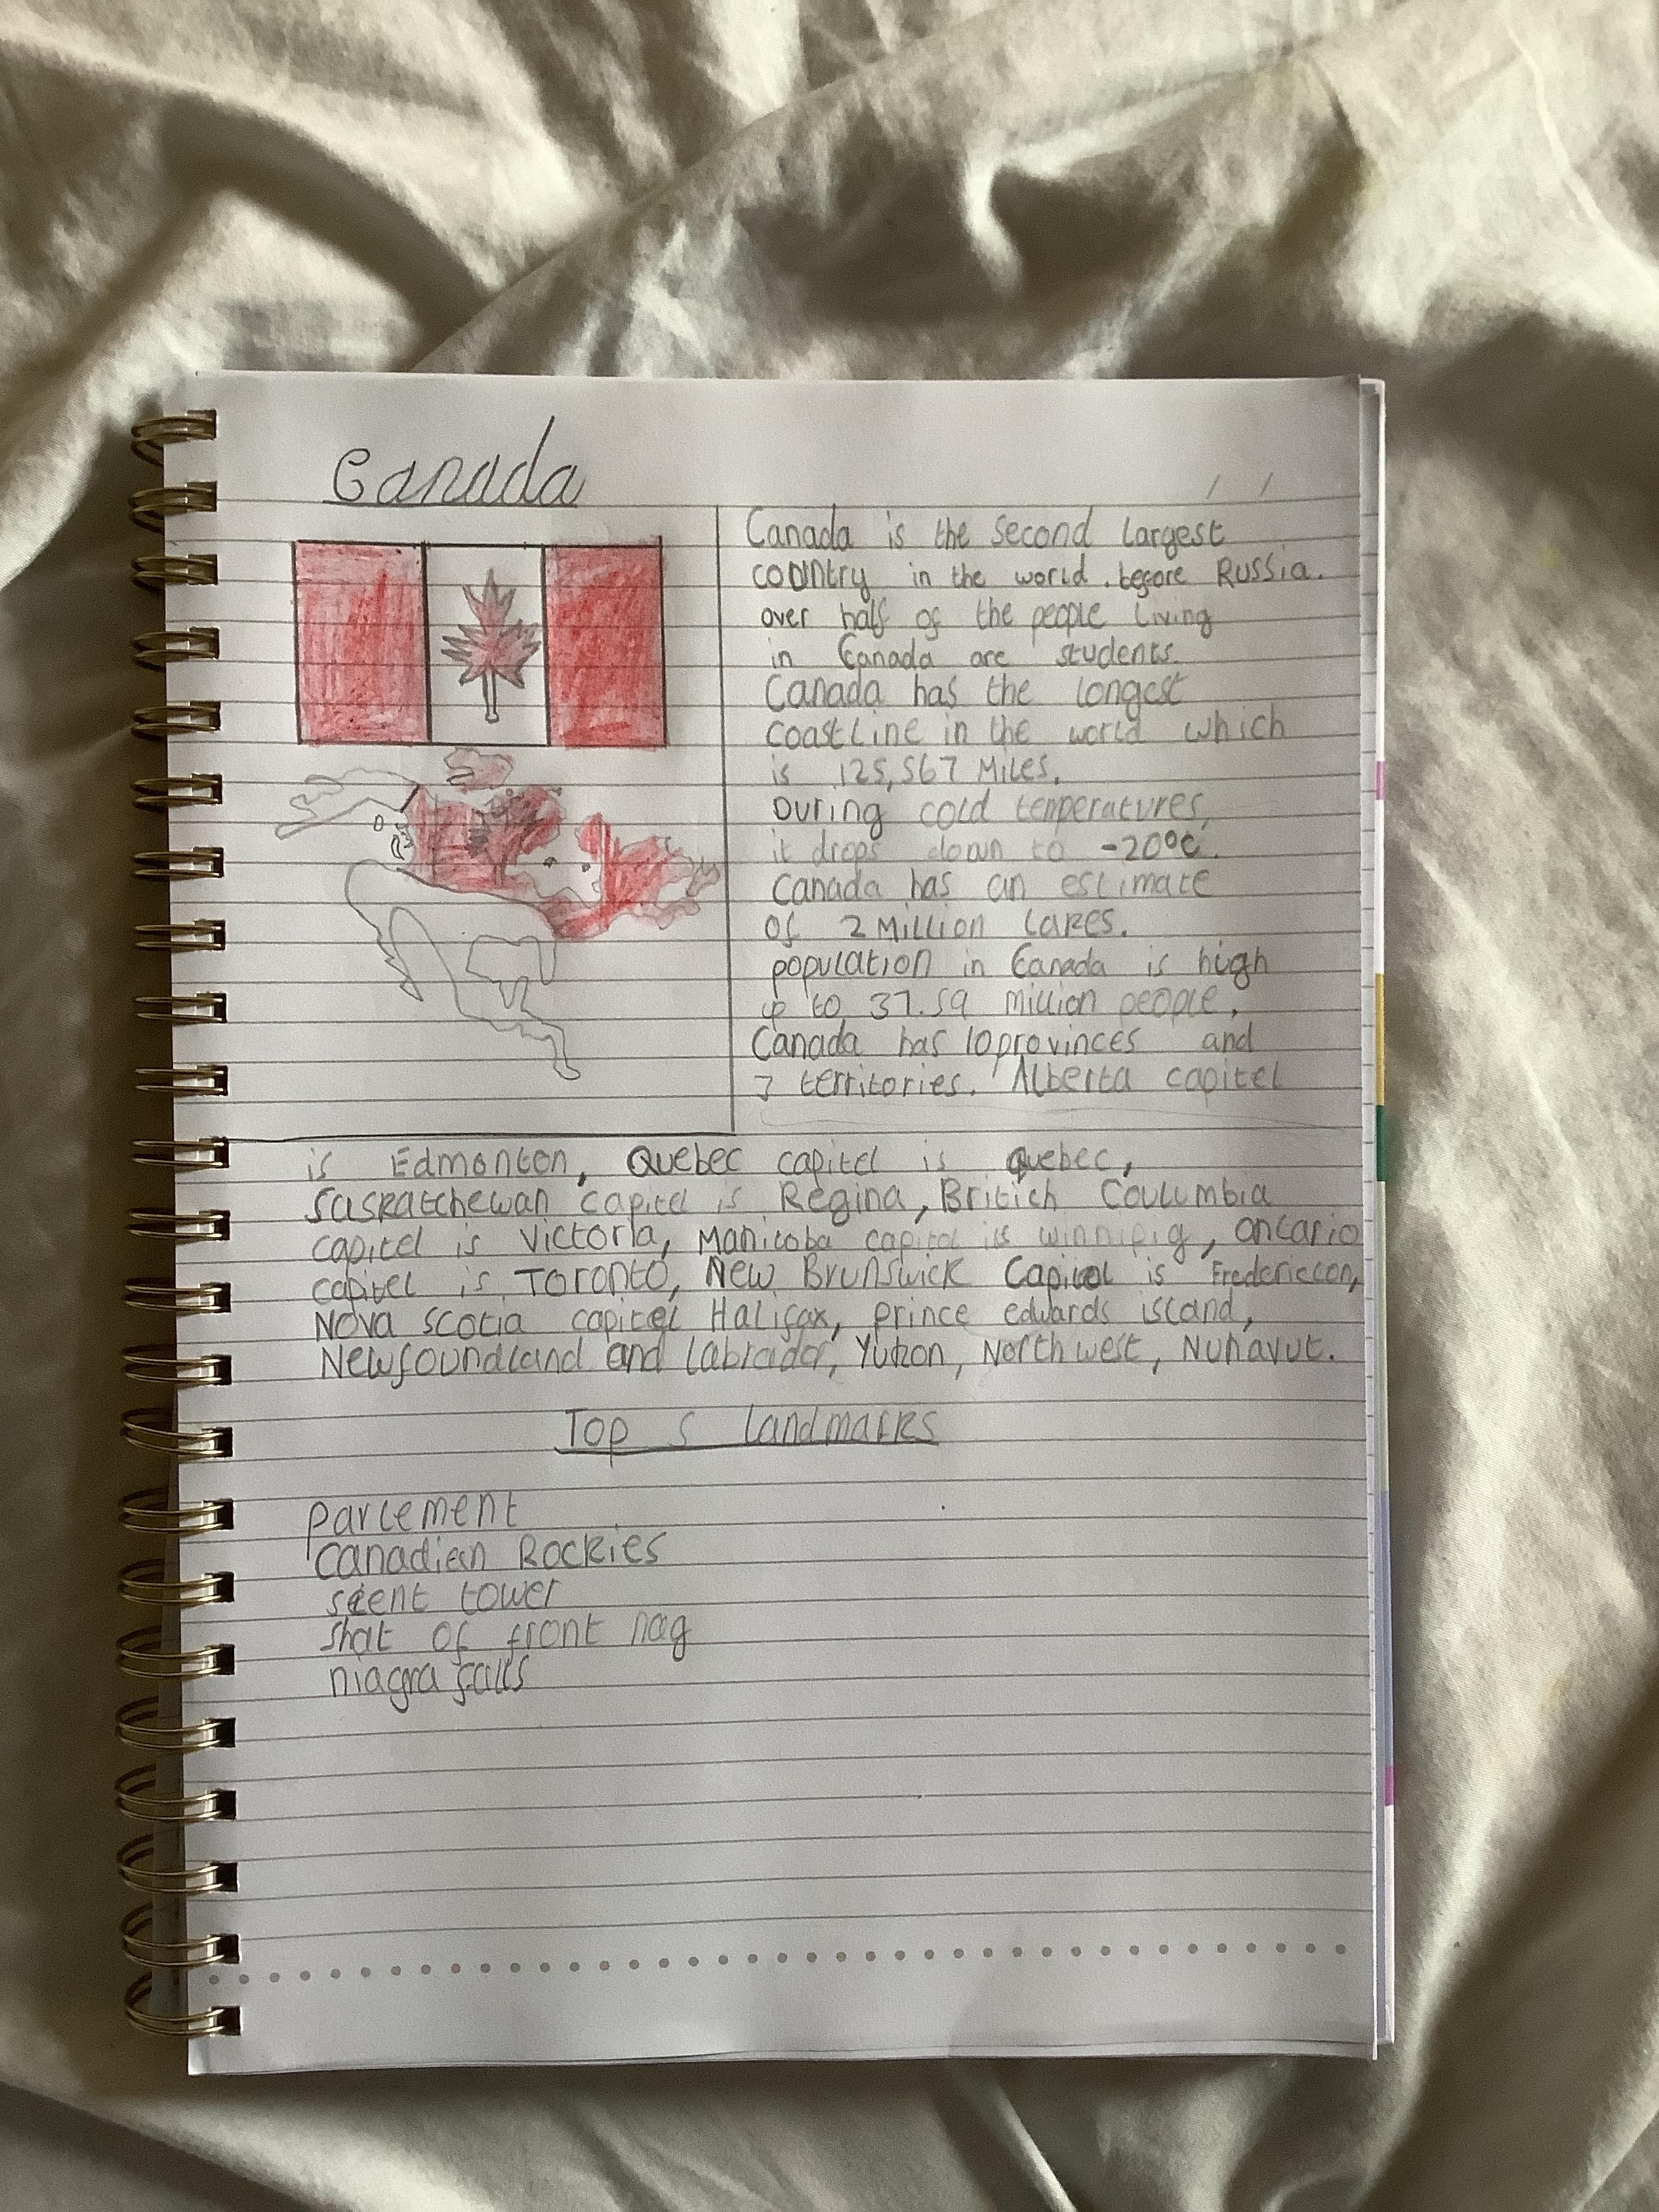 Canada
Canada is the second largest
country in the world. before Russia.
over half of the people living
in Canada are students.
Canada has the longest
coastline in the world which
is 125,567 Miles.
During cold temperatures,
it drops down to -20°c.
Canada has an estimate
of 2 Million lakes.
population in Canada is high
up to 37.59 million people,
Canada has 10 provinces and
3 territories. Alberta capitel
is Edmonton, Quebec capitel is quebec,
Saskatchewan capitel is Regina, British Coulumbia
capitel is Victoria, Manitoba capitol is winnipig, ontario
capitel is Toronto, New Brunswick Capitol is Fredericton,
Nova scotia capitel Halifax, prince edwards island,
Newfoundland and labrador, Yukon, North west, Nunavut.
Top 5 landmarks
parlement
canadian Rockies
scent tower
shat of front nag
niagra falls